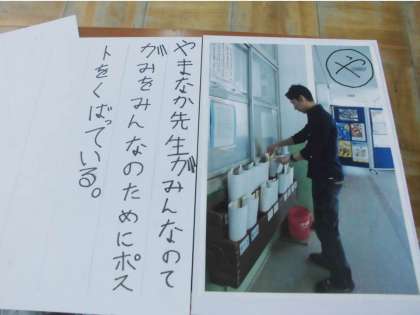 やまなか先生がみんなのて
がみをみんなのためにポス
トをくばっている。
や